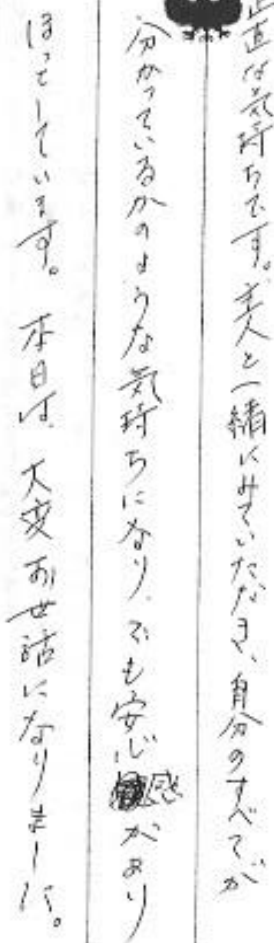 正直な気持ちです。主人と一緒にみていただき、自分のすべてが
分かっているかのような気持ちになり、でも安心感があり
ほっとしています。本日は、大変お世話になりました。